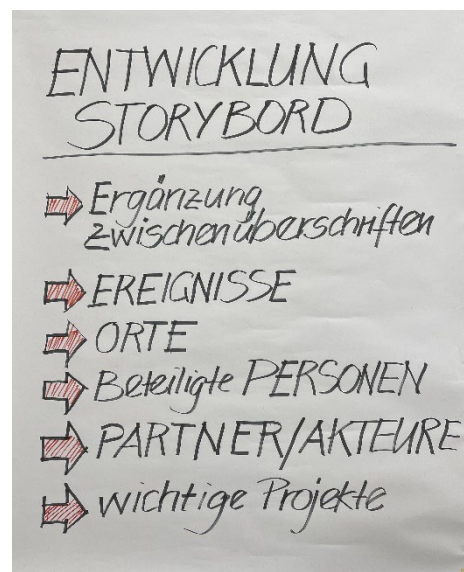 ENTWICKLUNG
STORYBORD
Ergänzung
zwischenüberschriften
EREIGNISSE
ORTE
Beteiligte PERSONEN
PARTNER/AKTEURE
wichtige Projekte